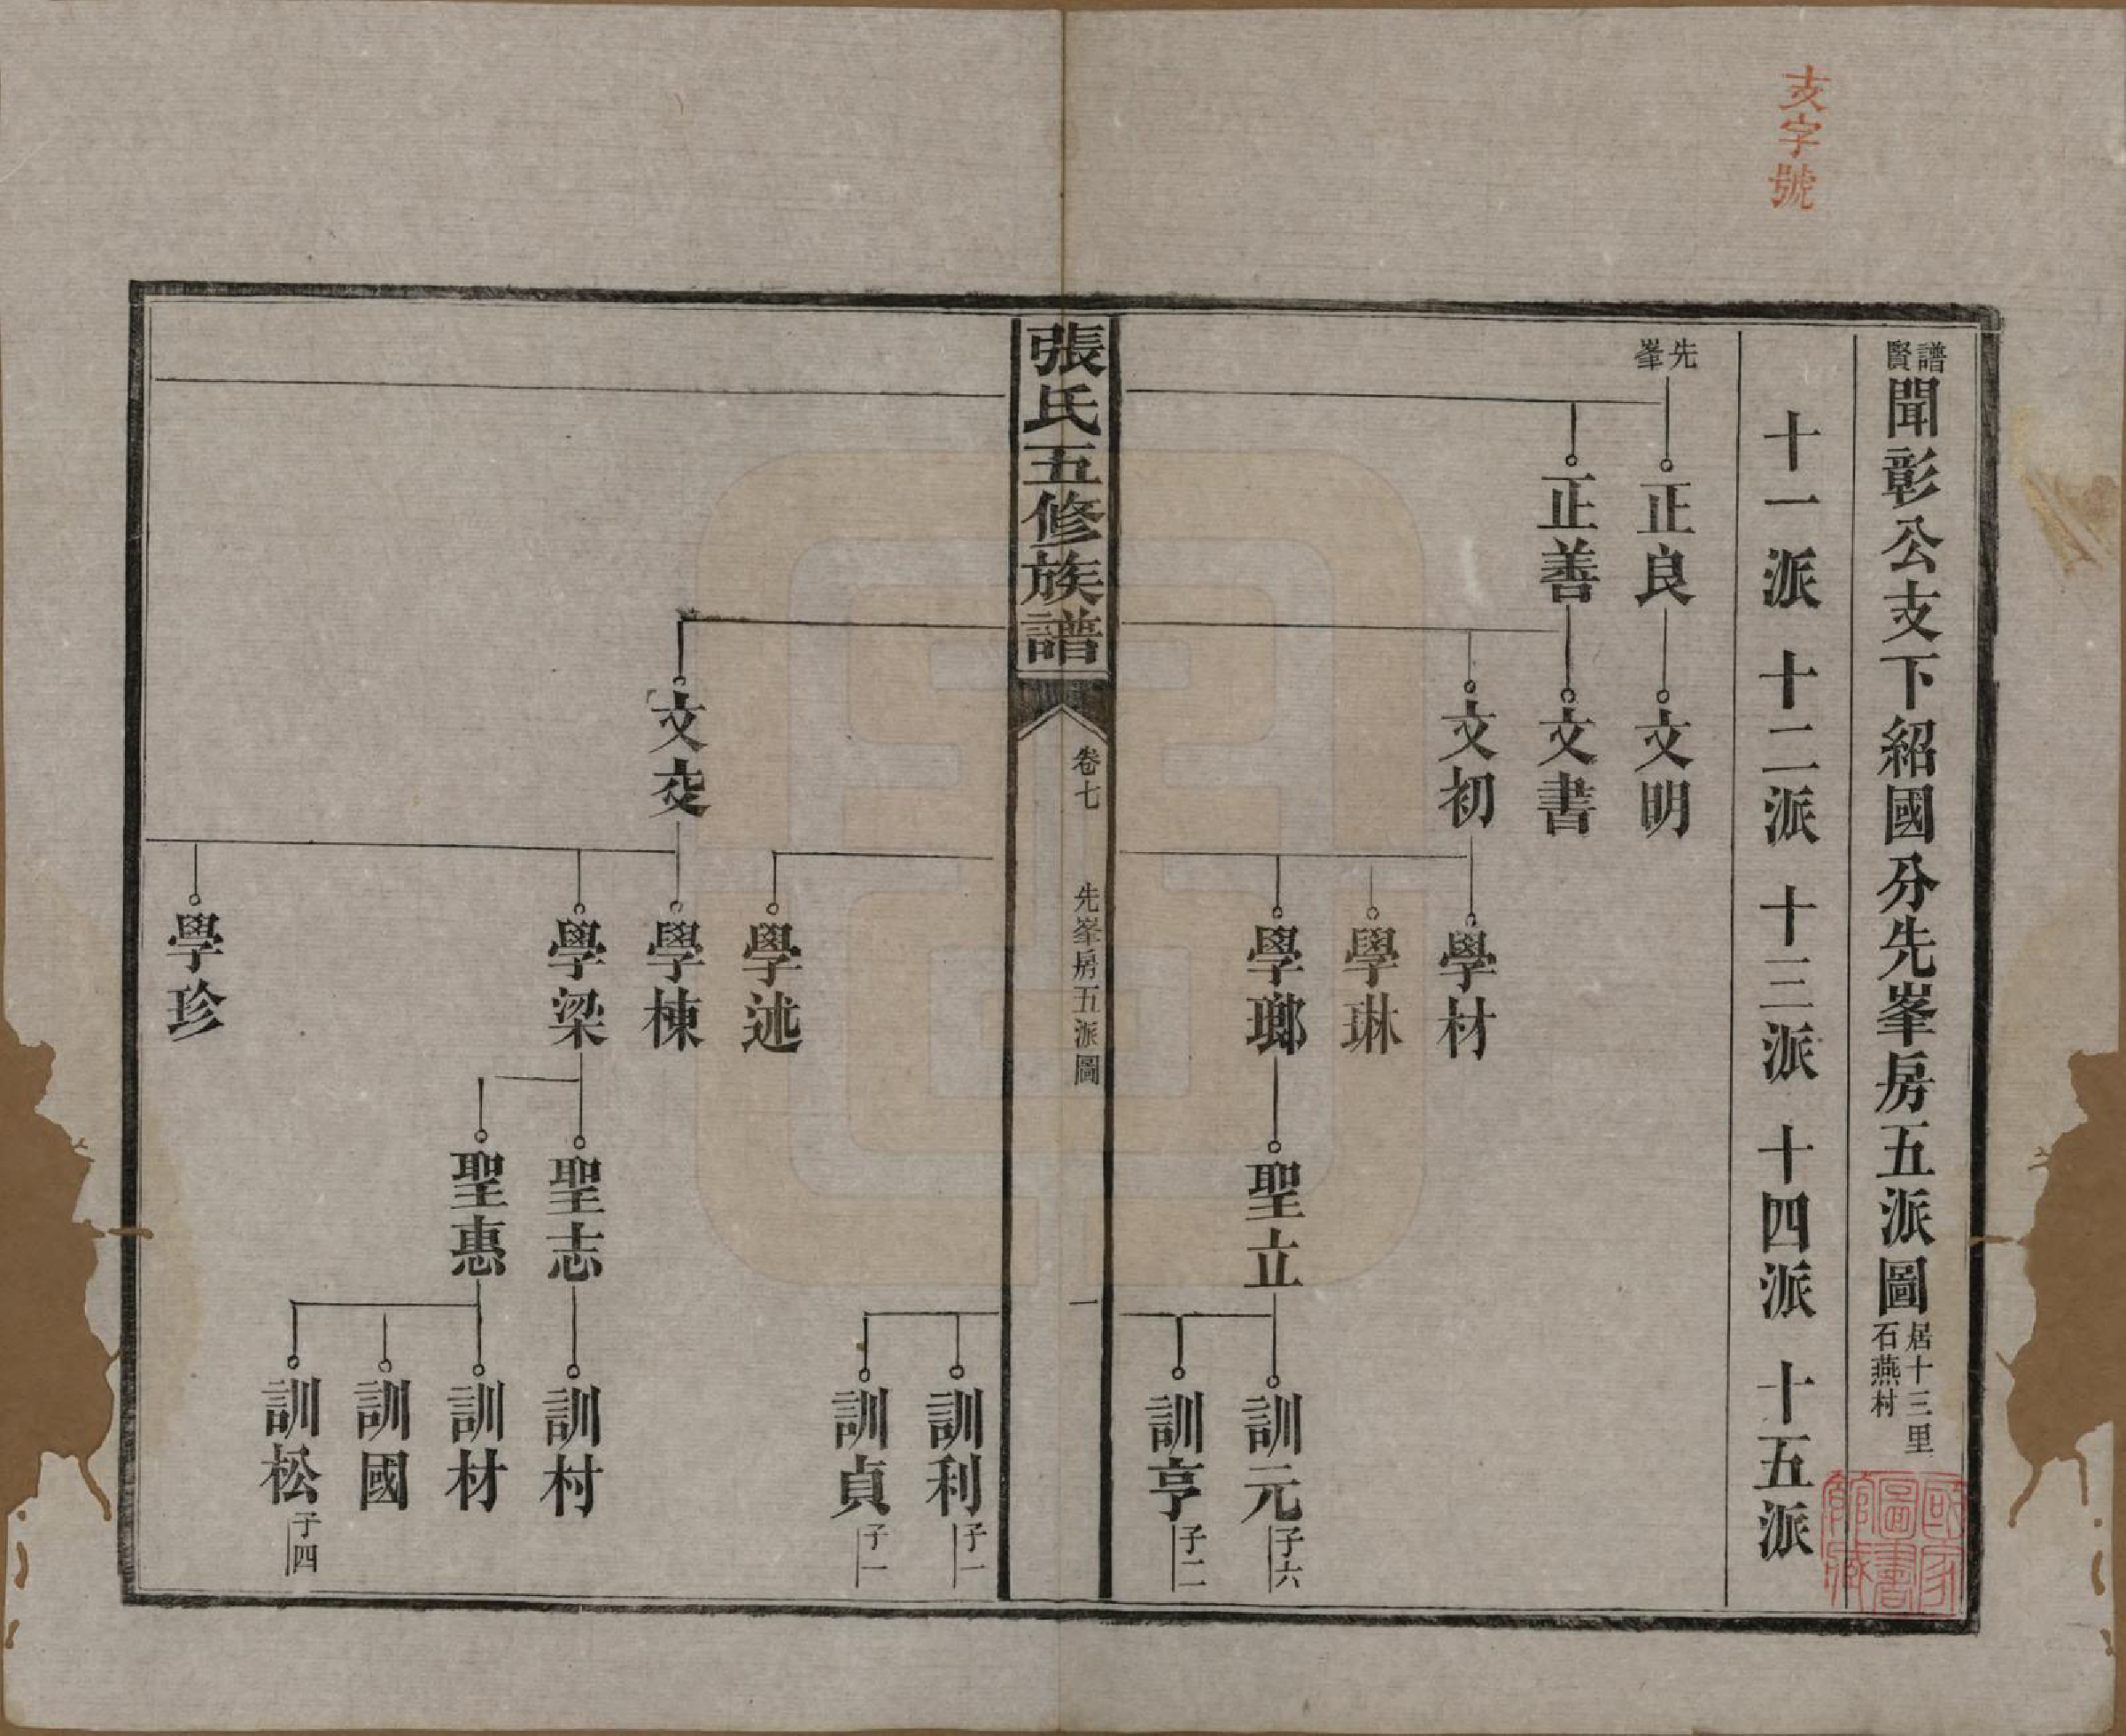 支字號
譜賢聞彰公支下紹國分先峯房五派圖居十三里石燕村
十一派 十二派 十三派 十四派 十五派
先峯
正良
文明
正善
文書
文初
學材
學琳
學瑯
聖立
訓元 子六
訓亨 子二
張氏五修族譜 卷七 先峯房五派圖 一
訓利 子一
訓貞 子一
學述
文交
學棟
學梁
聖志
訓村
聖惠
訓材
訓國
訓松 子四
學珍
國家圖書館藏